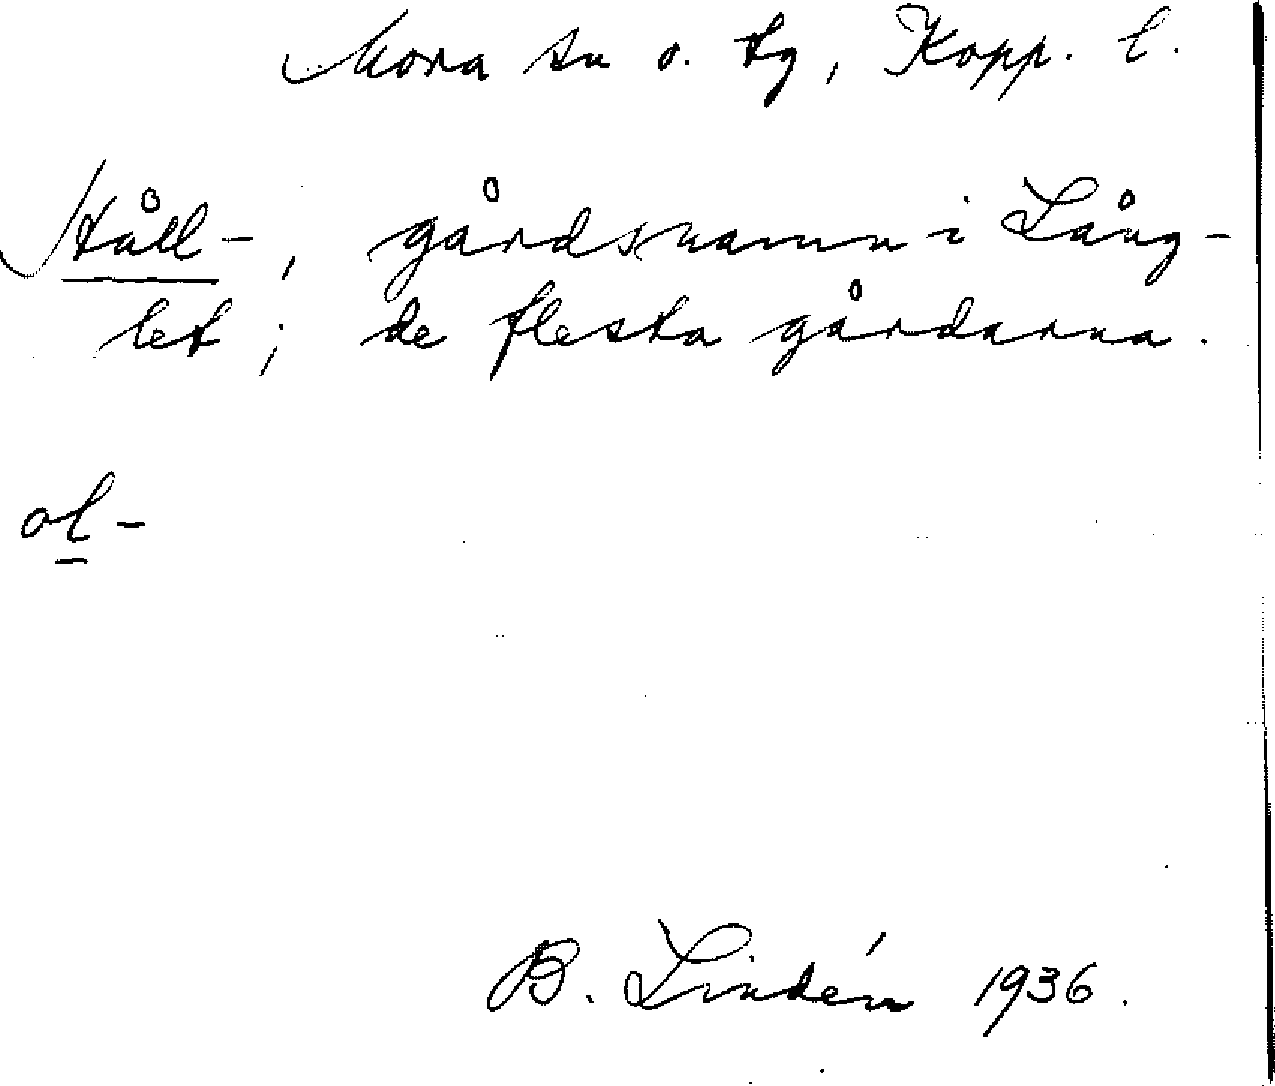 Mora sn o. tg, Kopp. l.
Ståll-, gårdsnamn i Lång-
let; de flesta gårdarna.
ol-
B. Lindén 1936.